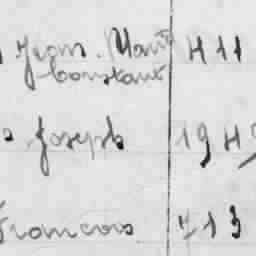 Jean. Marie H11
Constant
Joseph 19H
Francois 713